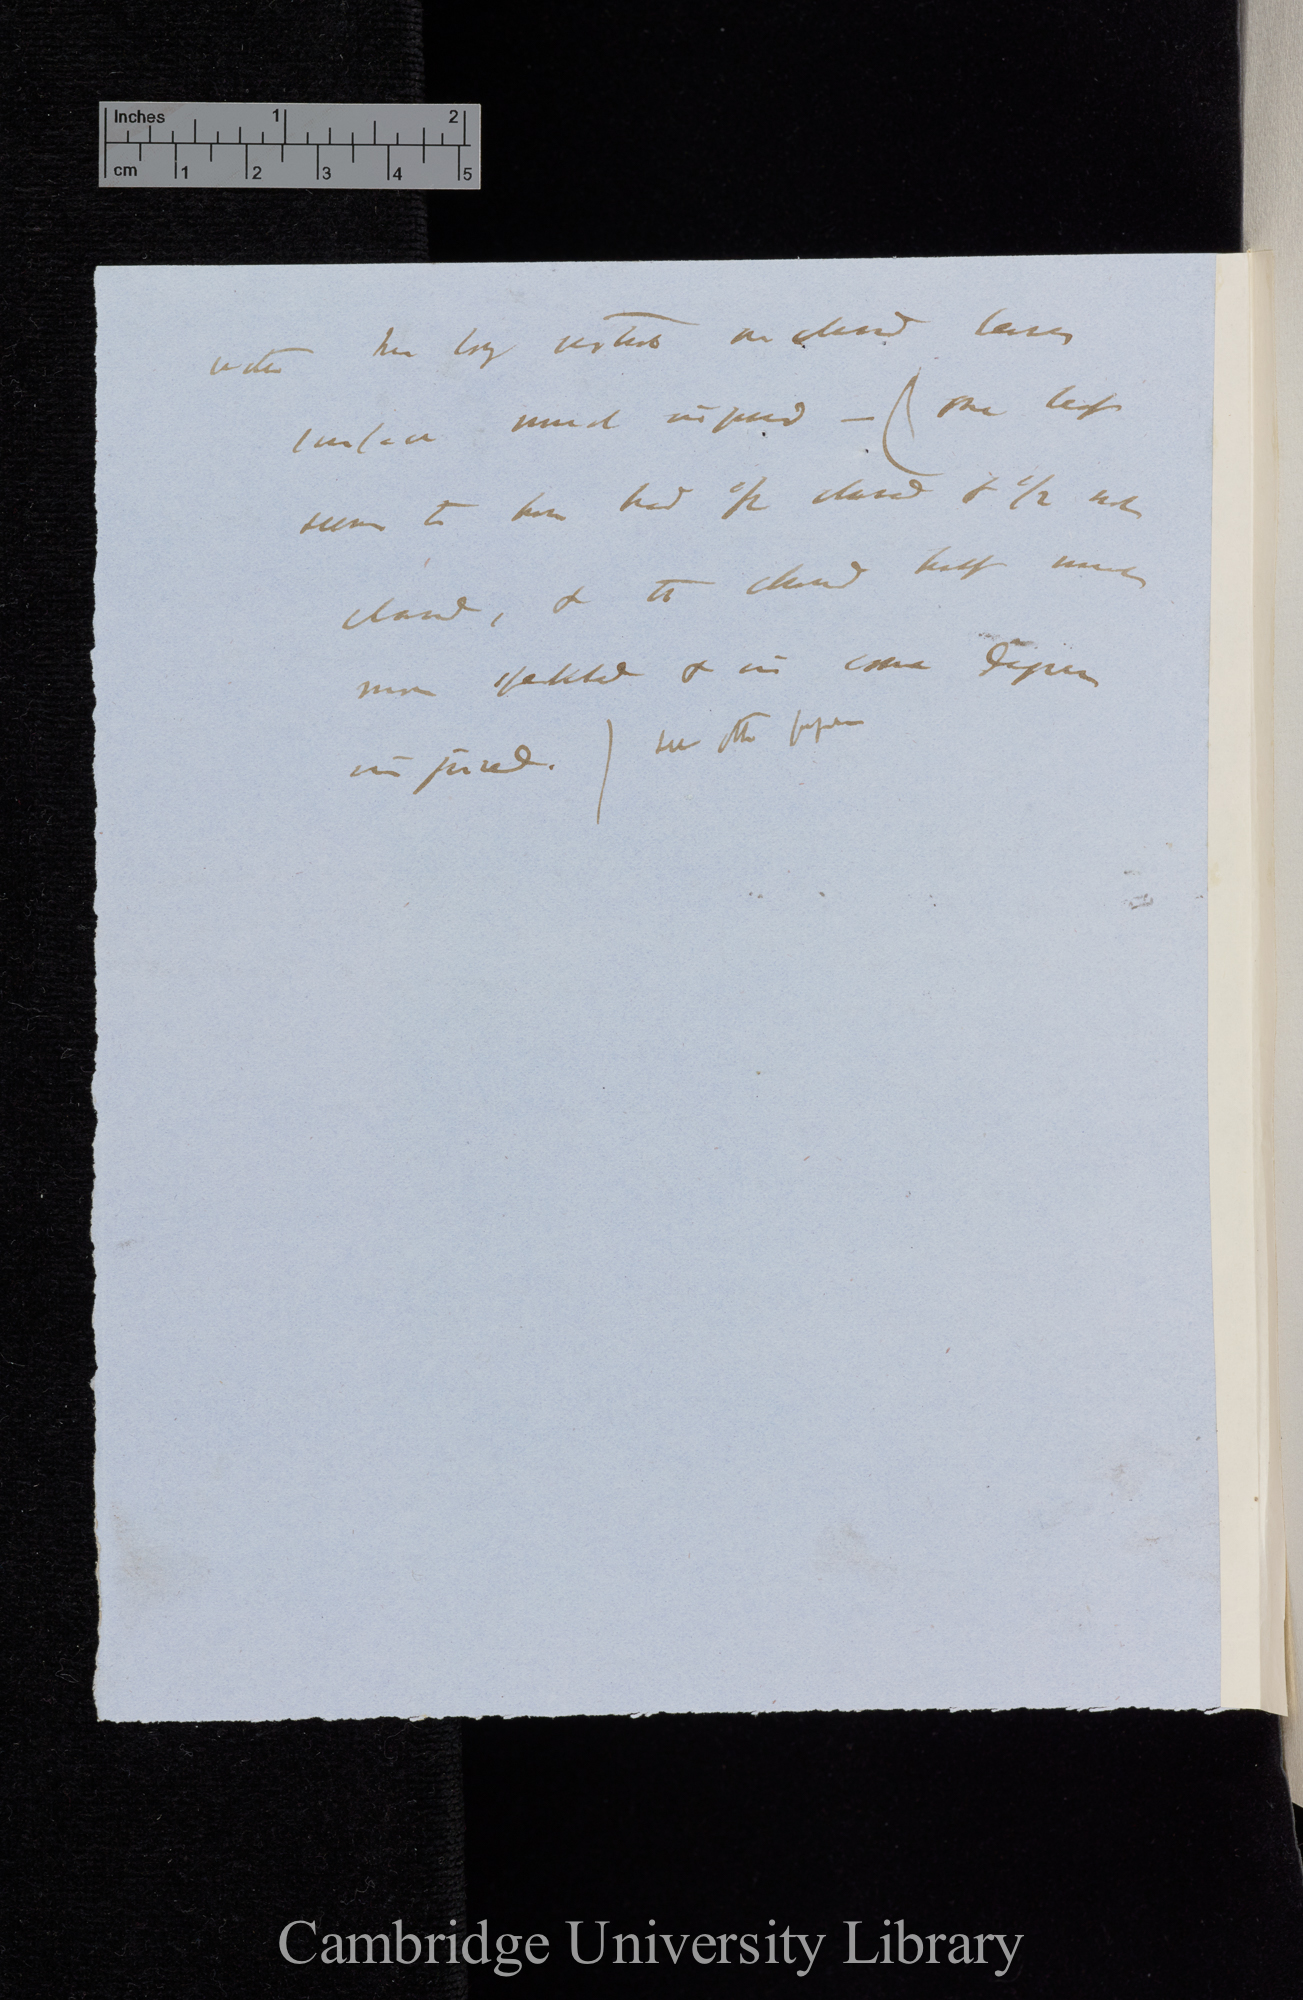 Inches 1 2
cm 1 2 3 4 5
closed leaves
surface much injured — ( one leaf
seems to have had 1/2 closed & 1/2 not
closed, & the closed half much
more speckled & in some degree
injured. ) see the paper
Cambridge University Library